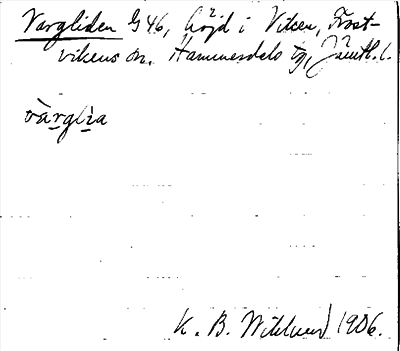 Vargliden G 46, höjd i Viken, Frost-
vikens sn. Hammerdals tg, Jämtl. l.
vàrglìa
K. B. Wiklund 1906.